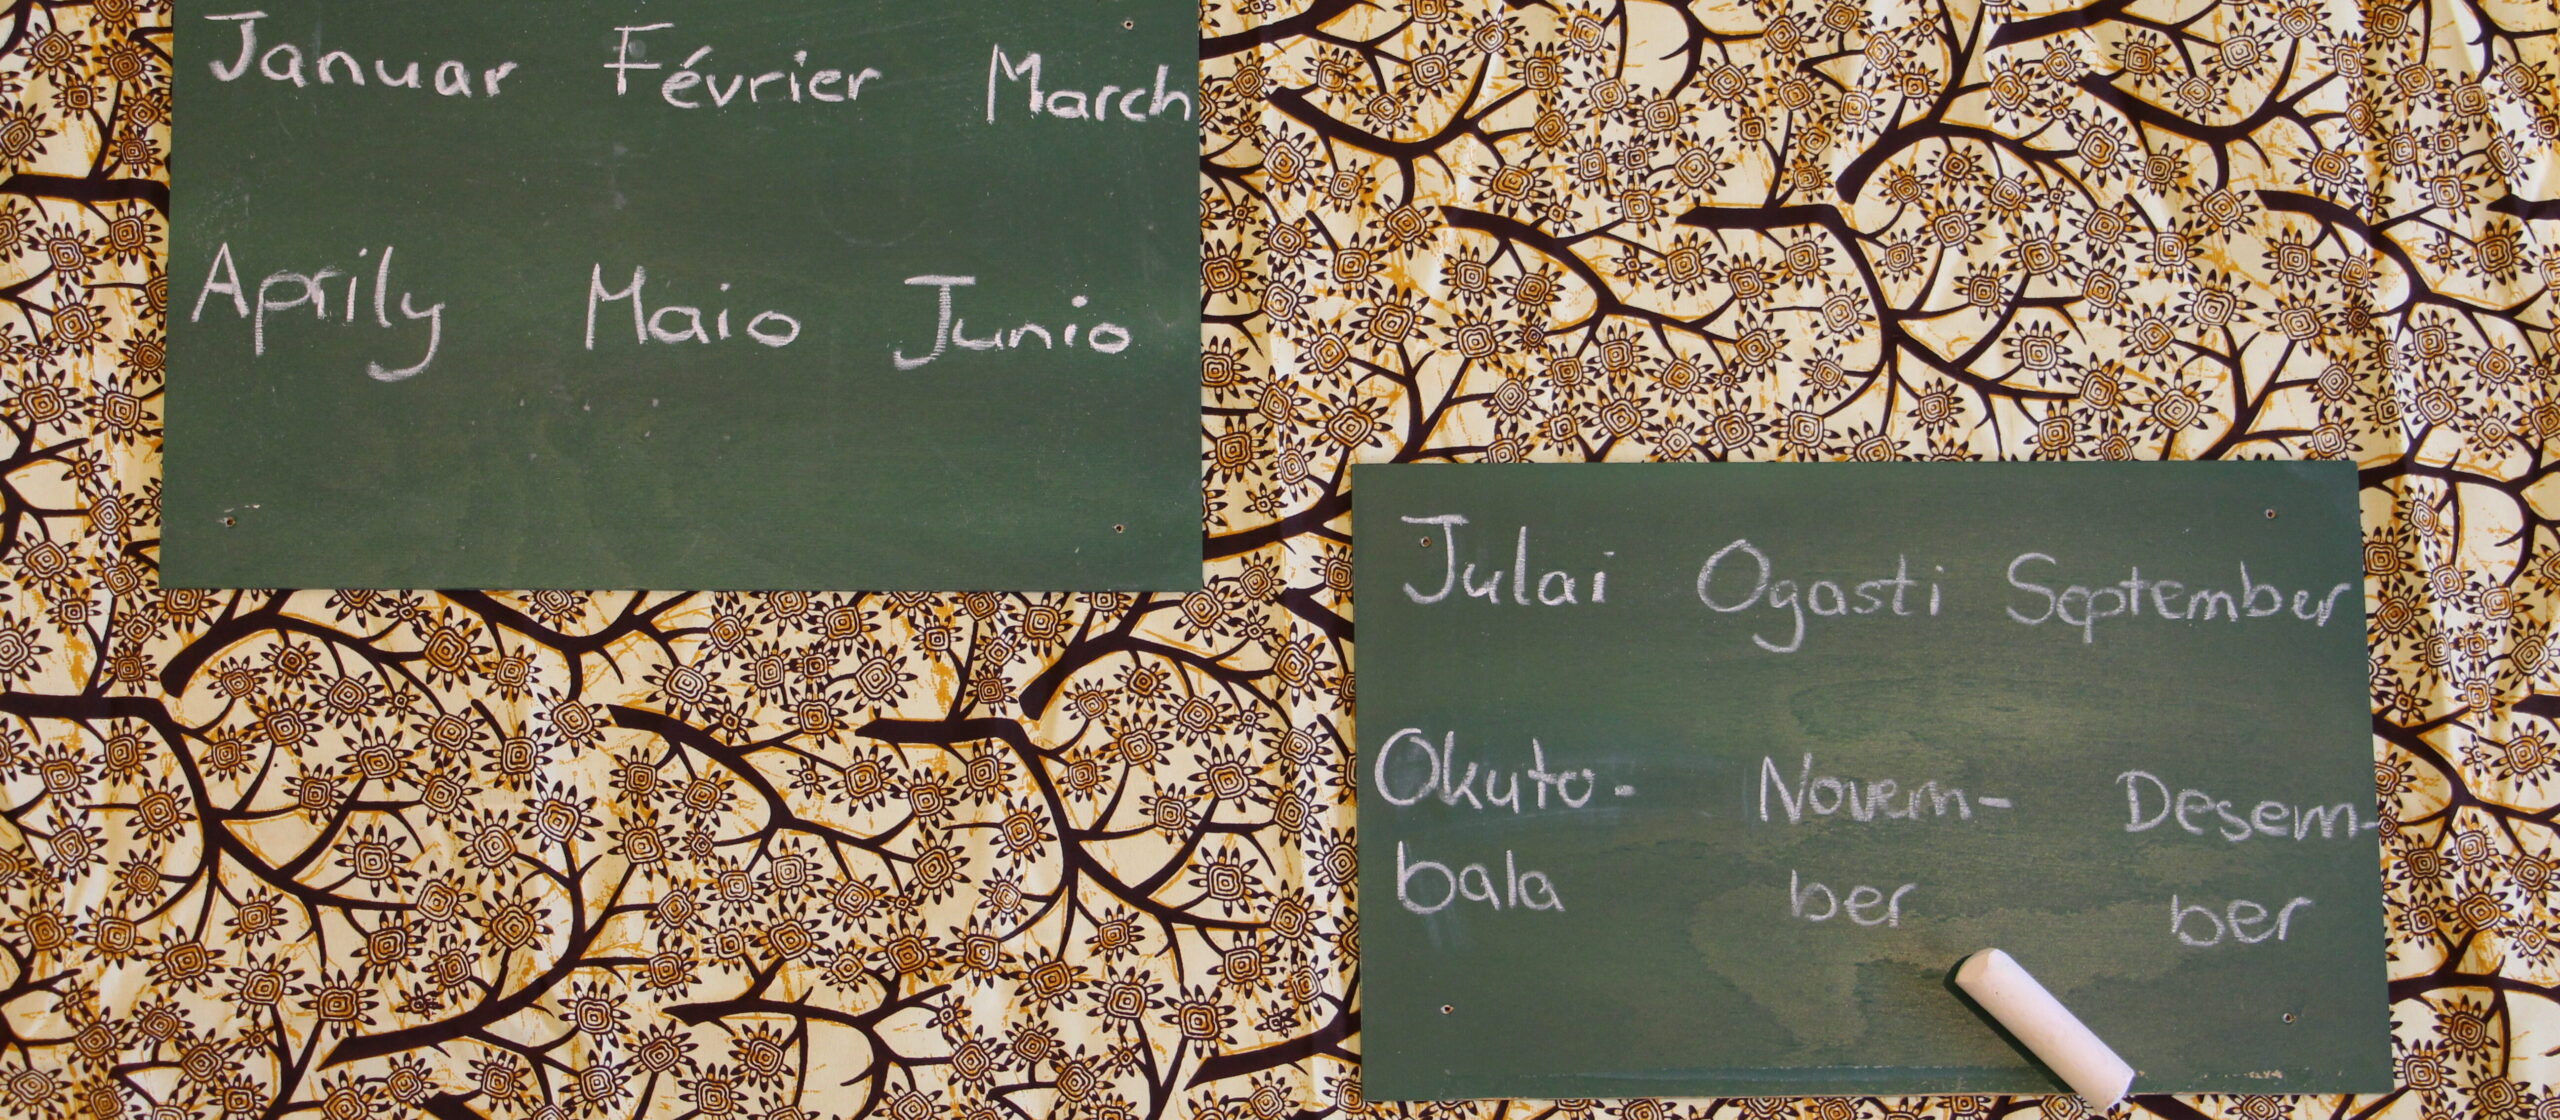 Januar Février March
Aprily Maio Junio
Julai Ogasti September
Okuto- Novem- Desem-
bala ber ber